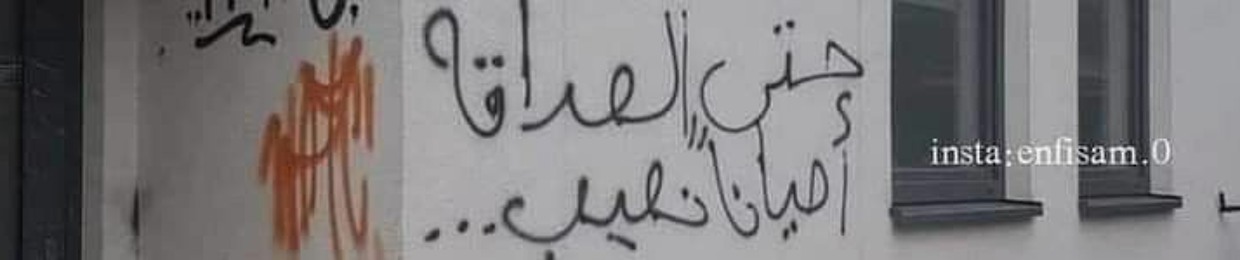 حتى الصداقة
أحياناً نصيب...
insta:enfisam.0